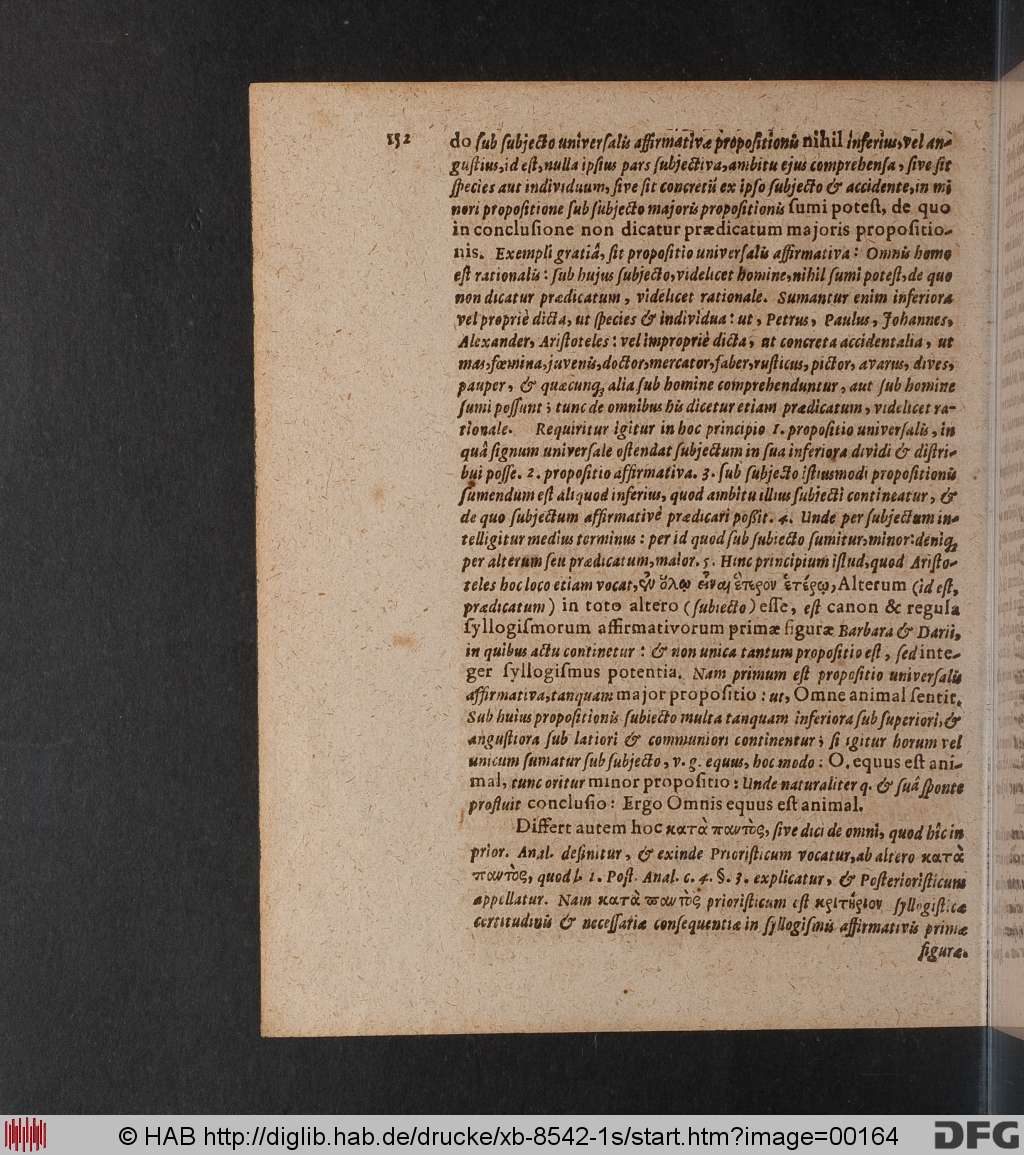 152 do ſub ſubjecto univerſalis affirmativæ propoſitionis nihil inferius, vel an-
guſtius, id eſt, nulla ipſius pars ſubjectiva, ambitu ejus comprehenſa, ſive ſit
ſpecies aut individuum, ſive ſit concretū ex ipſo ſubjecto & accidente, in mi
nori propoſitione ſub ſubjecto majoris propoſitionis ſumi poteſt, de quo
in concluſione non dicatur prædicatum majoris propoſitio-
nis. Exempli gratiâ, ſit propoſitio univerſalis affirmativa: Omnis homo
eſt rationalis: ſub hujus ſubjecto, videlicet homine, nihil ſumi poteſt, de quo
non dicatur prædicatum, videlicet rationale. Sumantur enim inferiora
vel propriè dicta, ut ſpecies & individua: ut, Petrus, Paulus, Johannes,
Alexander, Ariſtoteles: vel impropriè dicta, ut concreta accidentalia, ut
mas, fœmina, juvenis, doctor, mercator, faber, ruſticus, pictor, avarus, dives,
pauper, & quæcunq; alia ſub homine comprehenduntur, aut ſub homine
ſumi poſſunt; tunc de omnibus his dicetur etiam prædicatum, videlicet ra-
tionale. Requiritur igitur in hoc principio 1. propoſitio univerſalis, in
quâ ſignum univerſale oſtendat ſubjectum in ſua inferiora dividi & diſtri-
bui poſſe. 2. propoſitio affirmativa. 3. ſub ſubjecto iſtiusmodi propoſitionis
ſumendum eſt aliquod inferius, quod ambitu illius ſubjecti contineatur, &
de quo ſubjectum affirmativè prædicari poſſit. 4. Unde per ſubjectum in-
telligitur medius terminus: per id quod ſub ſubiecto ſumitur, minor: deniq;
per alterum ſeu prædicatum, maior. 5. Hinc principium iſtud, quod Ariſto-
teles hoc loco etiam vocat, ἐν ὅλῳ εἶναι ἕτερον ἑτέρῳ, Alterum (id eſt,
prædicatum) in toto altero (ſubiecto) eſſe, eſt canon & regula
ſyllogiſmorum affirmativorum primæ figuræ Barbara & Darii,
in quibus actu continetur: & non unica tantum propoſitio eſt, ſed inte-
ger ſyllogiſmus potentia. Nam primum eſt propoſitio univerſalis
affirmativa, tanquam major propoſitio: ut, Omne animal ſentit.
Sub huius propoſitionis ſubiecto multa tanquam inferiora ſub ſuperiori, &
anguſtiora ſub latiori & communiori continentur; ſi igitur horum vel
unicum ſumatur ſub ſubjecto, v. g. equus, hoc modo: O. equus eſt ani-
mal, tunc oritur minor propoſitio: Unde naturaliter q. & ſuâ ſponte
profluit concluſio: Ergo Omnis equus eſt animal.
Differt autem hoc κατὰ παντὸς, ſive dici de omni, quod hîc in
prior. Anal. definitur, & exinde Prioriſticum vocatur, ab altero κατὰ
παντὸς, quod l. 1. Poſt. Anal. c. 4. §. 3. explicatur, & Poſterioriſticum
appellatur. Nam κατὰ παντὸς prioriſticum eſt κριτήριον ſyllogiſticæ
certitudinis & neceſſariæ conſequentiæ in ſyllogiſmis affirmativis primæ
figuræ.
© HAB http://diglib.hab.de/drucke/xb-8542-1s/start.htm?image=00164
DFG